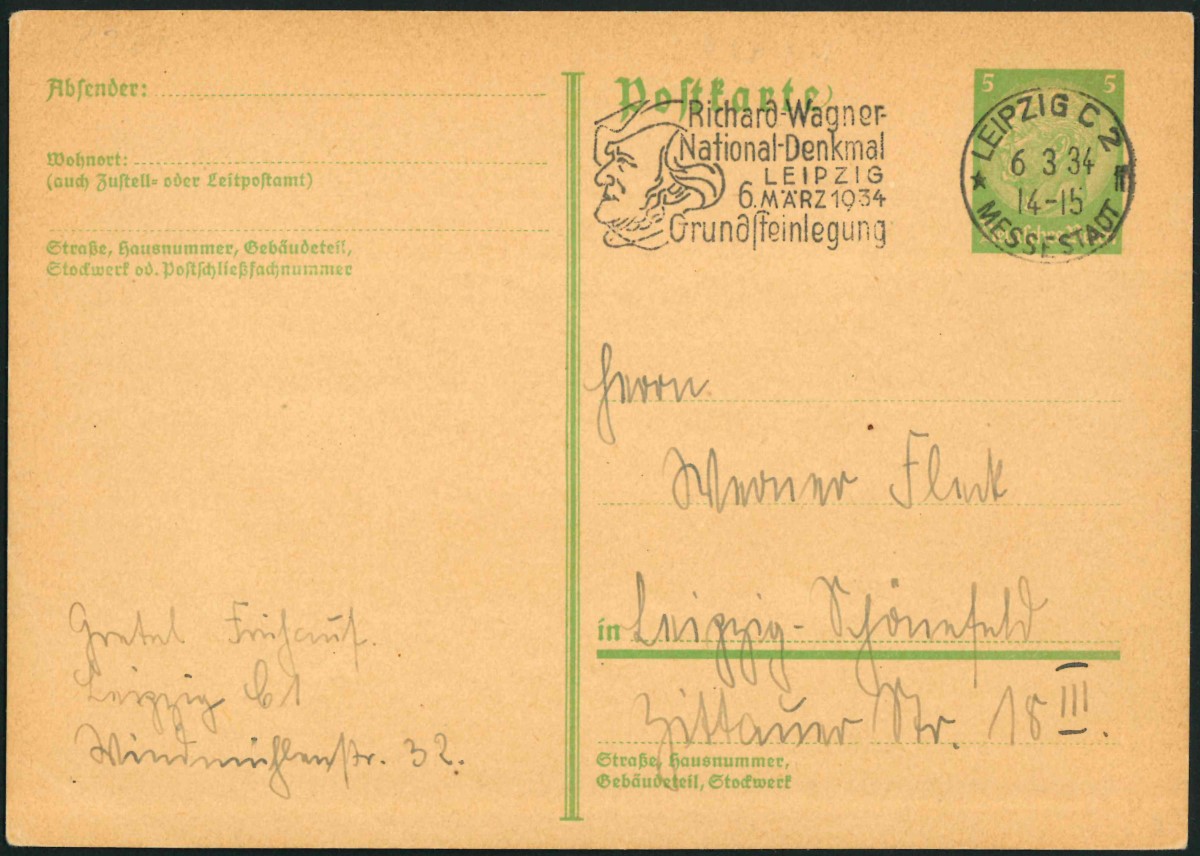 Absender:
Wohnort:
(auch Zustell- oder Leitpostamt)
Straße, Hausnummer, Gebäudeteil,
Stockwerk od. Postschließfachnummer
Gretel Frühauf.
Leipzig C1
Windmühlenstr. 32.
Postkarte
Richard-Wagner-
National-Denkmal
LEIPZIG
6. MÄRZ 1934
Grundsteinlegung
5 5
LEIPZIG C 2
6 3 34
14-15
★ MESSESTADT
Herrn
Werner Fleck
in Leipzig-Schönefeld
Zittauer Str. 18 III.
Straße, Hausnummer,
Gebäudeteil, Stockwerk